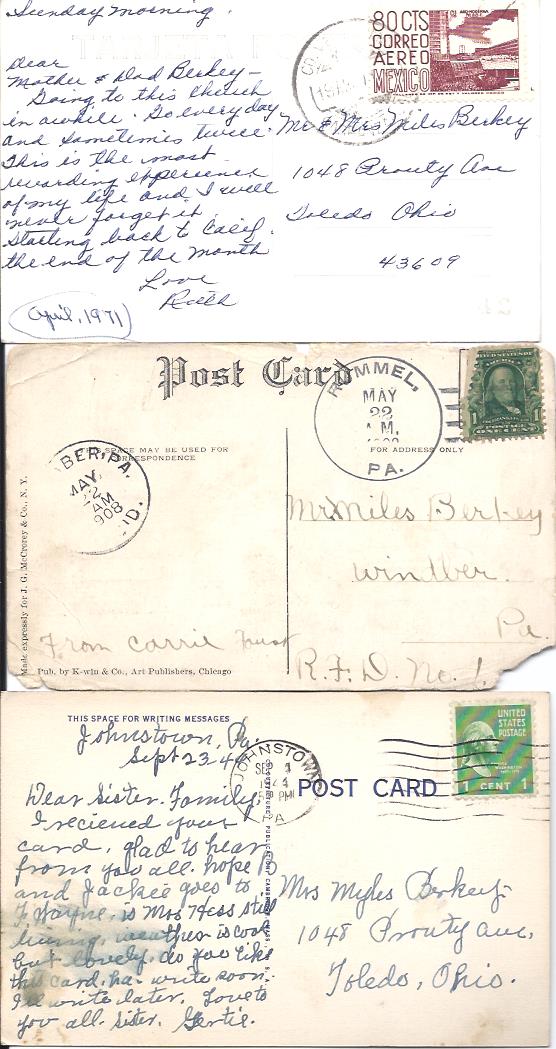 Sunday Morning.
Dear
Mother & Dad Berkey –
Going to this Church
in awhile. Go every day
and sometimes twice.
This is the most
rewarding experience
of my life and I will
never forget it.
Starting back to Calif.
the end of the month
Love
Ruth
April, 1971
80 CTS
CORREO
AEREO
MEXICO
Mr & Mrs Miles Berkey
1048 Prouty Ave
Toledo Ohio
43609
Post Card
THIS SPACE MAY BE USED FOR
CORRESPONDENCE
FOR ADDRESS ONLY
RUMMEL,
MAY
22
A.M.
PA.
BER, PA.
MAY
22
AM
1908
Made expressly for J. G. McCrorey & Co., N. Y.
Mr. Miles Berkey
Windber.
Pa.
R.F.D. No. 1.
From Carrie Faust
Pub. by K-win & Co., Art Publishers, Chicago
THIS SPACE FOR WRITING MESSAGES
Johnstown, Pa.
Sept 23-4
Dear Sister. Family.
I recieved your
card, glad to hear
from you all. hope B
and Jackie goes to
Ft Wayne, is Mrs Hess still
living, weather is cool
but lovely, do you like
this card, ha. write soon.
I'll write later. Love to
you all. Sister. Gertie.
JOHNSTOWN
SEP
PM
PA
POST CARD
UNITED
STATES
POSTAGE
1 CENT 1
Mrs Myles Berkey
1048 Prouty Ave,
Toledo, Ohio.